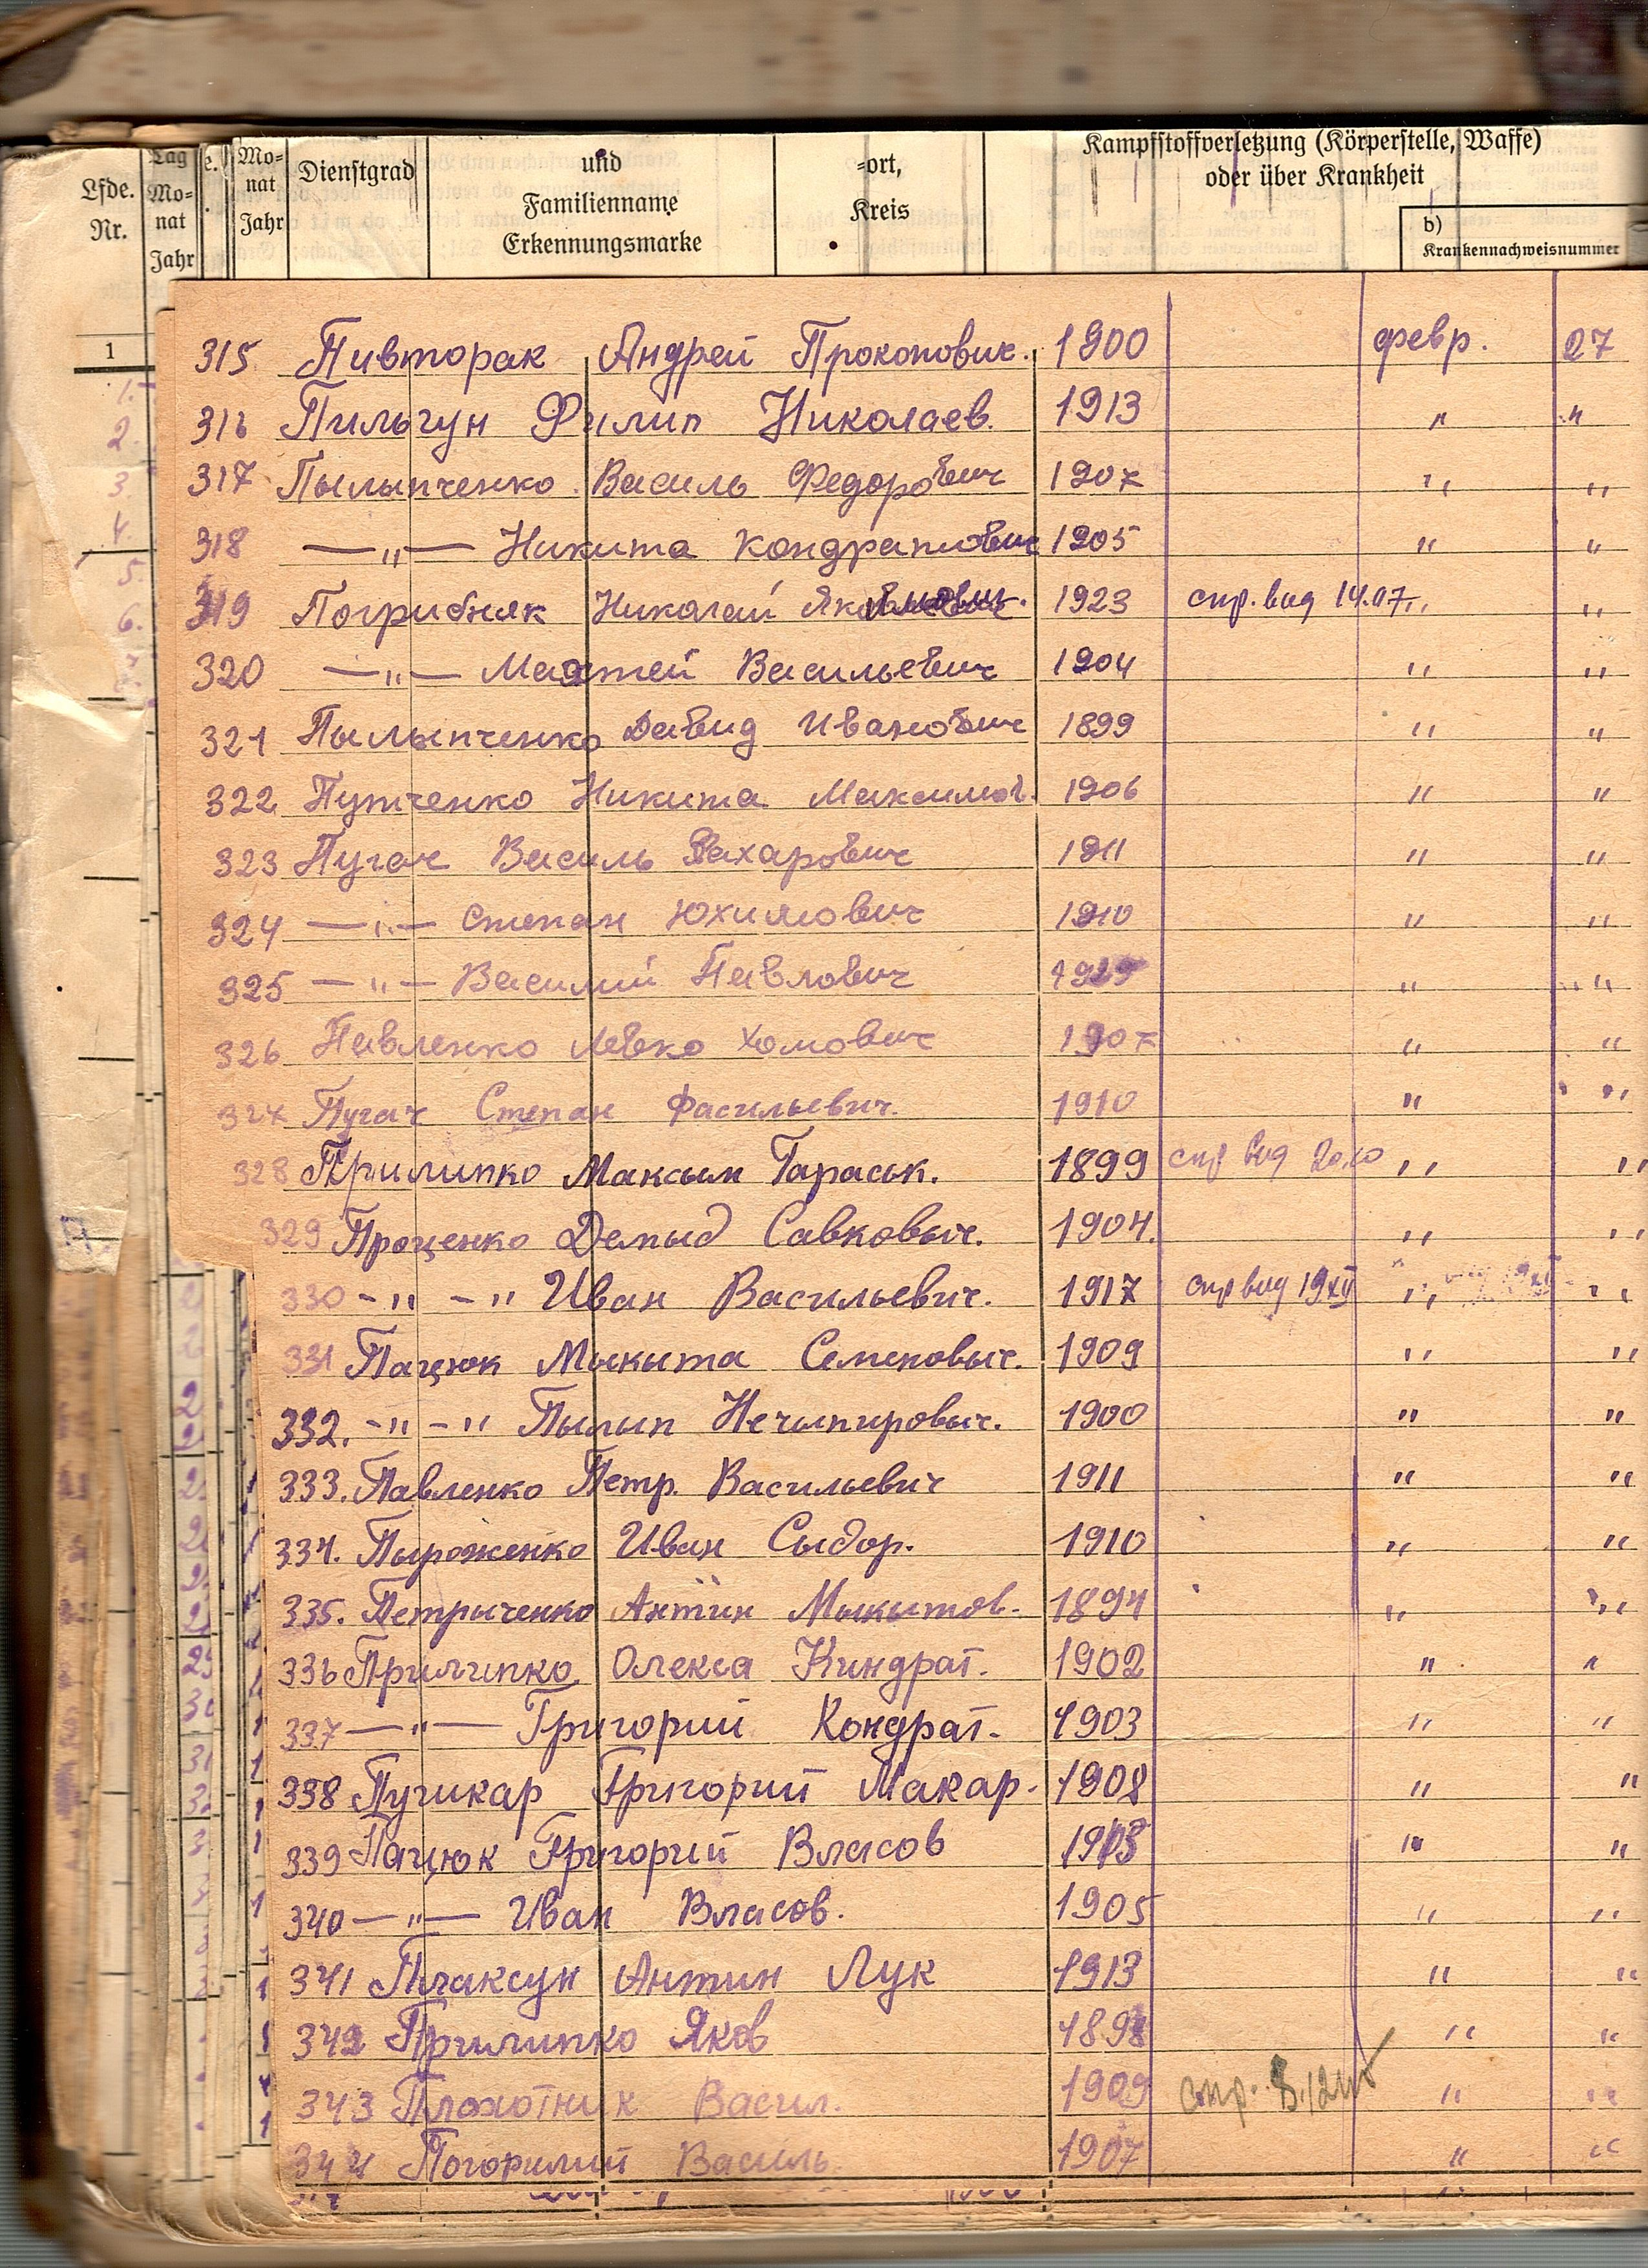 Lfde. Nr.
Tag Mo- nat Jahr
e.
Mo- nat Jahr
Dienstgrad
und Familienname Erkennungsmarke
=ort, Kreis
Kampfstoffverletzung (Körperstelle, Waffe) oder über Krankheit
b) Krankennachweisnummer
1
315 Пивторак Андрей Прокопович. 1900 февр. 27
316 Пильгун Филип Николаев. 1913 " "
317 Пылыпченко Василь Федорович 1907 " "
318 —"— Никита Кондратович 1905 " "
319 Погрибняк Николай 1923 спр. вид 14.07 " "
320 —"— Матей Васильевич 1904 " "
321 Пылыпченко Давид Иванович 1899 " "
322 Путченко Никита Максимов. 1906 " "
323 Пугач Василь Захарович 1911 " "
324 —"— Степан Юхимович 1910 " "
325 —"— Василий Павлович " "
326 Павленко Левко Хомович 1907 " "
327 Пугач Степан Фасильевич. 1910 " "
328 Прилипко Максым Тараськ. 1899 спр вид 20.10 " "
329 Проценко Демыд Савковыч. 1904. " "
330 -"-" Иван Васильевич. 1917 спр вид 19 XII " "
331 Пацюк Мыкыта Семеновыч. 1909 " "
332. -"-" Пылып Нечыпировыч. 1900 " "
333. Павленко Петр. Васильевич 1911 " "
334. Пыроженко Иван Сыдор. 1910 " "
335. Петрыченко Антин Мыкытов. 1894 " "
336 Прилипко Олекса Киндрат. 1902 " "
337 —"— Григорий Кондрат. 1903 " "
338 Пушкар Григорий Макар. 1908 " "
339 Пацюк Григорий Власов " "
340 —"— Иван Власов. 1905 " "
341 Плаксун Антин Лук 1913 " "
342 Прилипко Яков 1898 " "
343 Плохотник Васил. 1909 спр. " "
344 Погорилий Василь. 1907 " "